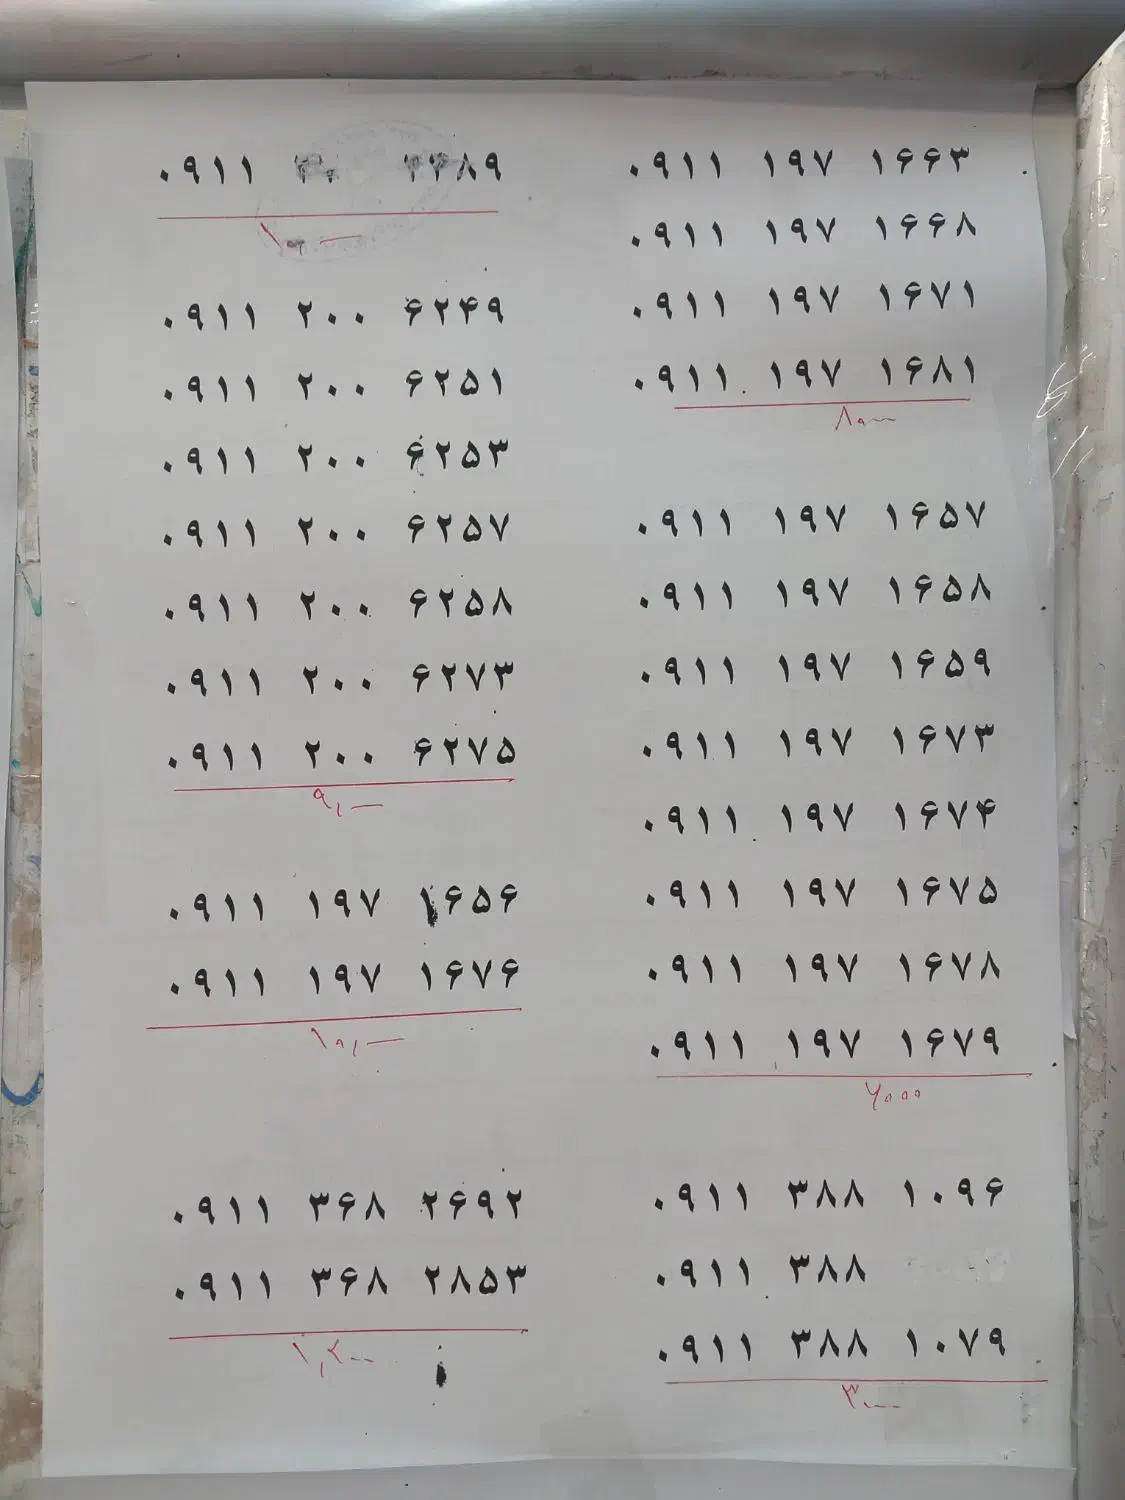 ۰۹۱۱
۰۹۱۱ ۲۰۰ ۶۲۴۹
۰۹۱۱ ۲۰۰ ۶۲۵۱
۰۹۱۱ ۲۰۰ ۶۲۵۳
۰۹۱۱ ۲۰۰ ۶۲۵۷
۰۹۱۱ ۲۰۰ ۶۲۵۸
۰۹۱۱ ۲۰۰ ۶۲۷۳
۰۹۱۱ ۲۰۰ ۶۲۷۵
۰۹۱۱ ۱۹۷ ۱۶۵۶
۰۹۱۱ ۱۹۷ ۱۶۷۶
۰۹۱۱ ۳۶۸ ۲۶۹۲
۰۹۱۱ ۳۶۸ ۲۸۵۳
۰۹۱۱ ۱۹۷ ۱۶۶۳
۰۹۱۱ ۱۹۷ ۱۶۶۸
۰۹۱۱ ۱۹۷ ۱۶۷۱
۰۹۱۱ ۱۹۷ ۱۶۸۱
۰۹۱۱ ۱۹۷ ۱۶۵۷
۰۹۱۱ ۱۹۷ ۱۶۵۸
۰۹۱۱ ۱۹۷ ۱۶۵۹
۰۹۱۱ ۱۹۷ ۱۶۷۳
۰۹۱۱ ۱۹۷ ۱۶۷۴
۰۹۱۱ ۱۹۷ ۱۶۷۵
۰۹۱۱ ۱۹۷ ۱۶۷۸
۰۹۱۱ ۱۹۷ ۱۶۷۹
۰۹۱۱ ۳۸۸ ۱۰۹۶
۰۹۱۱ ۳۸۸
۰۹۱۱ ۳۸۸ ۱۰۷۹